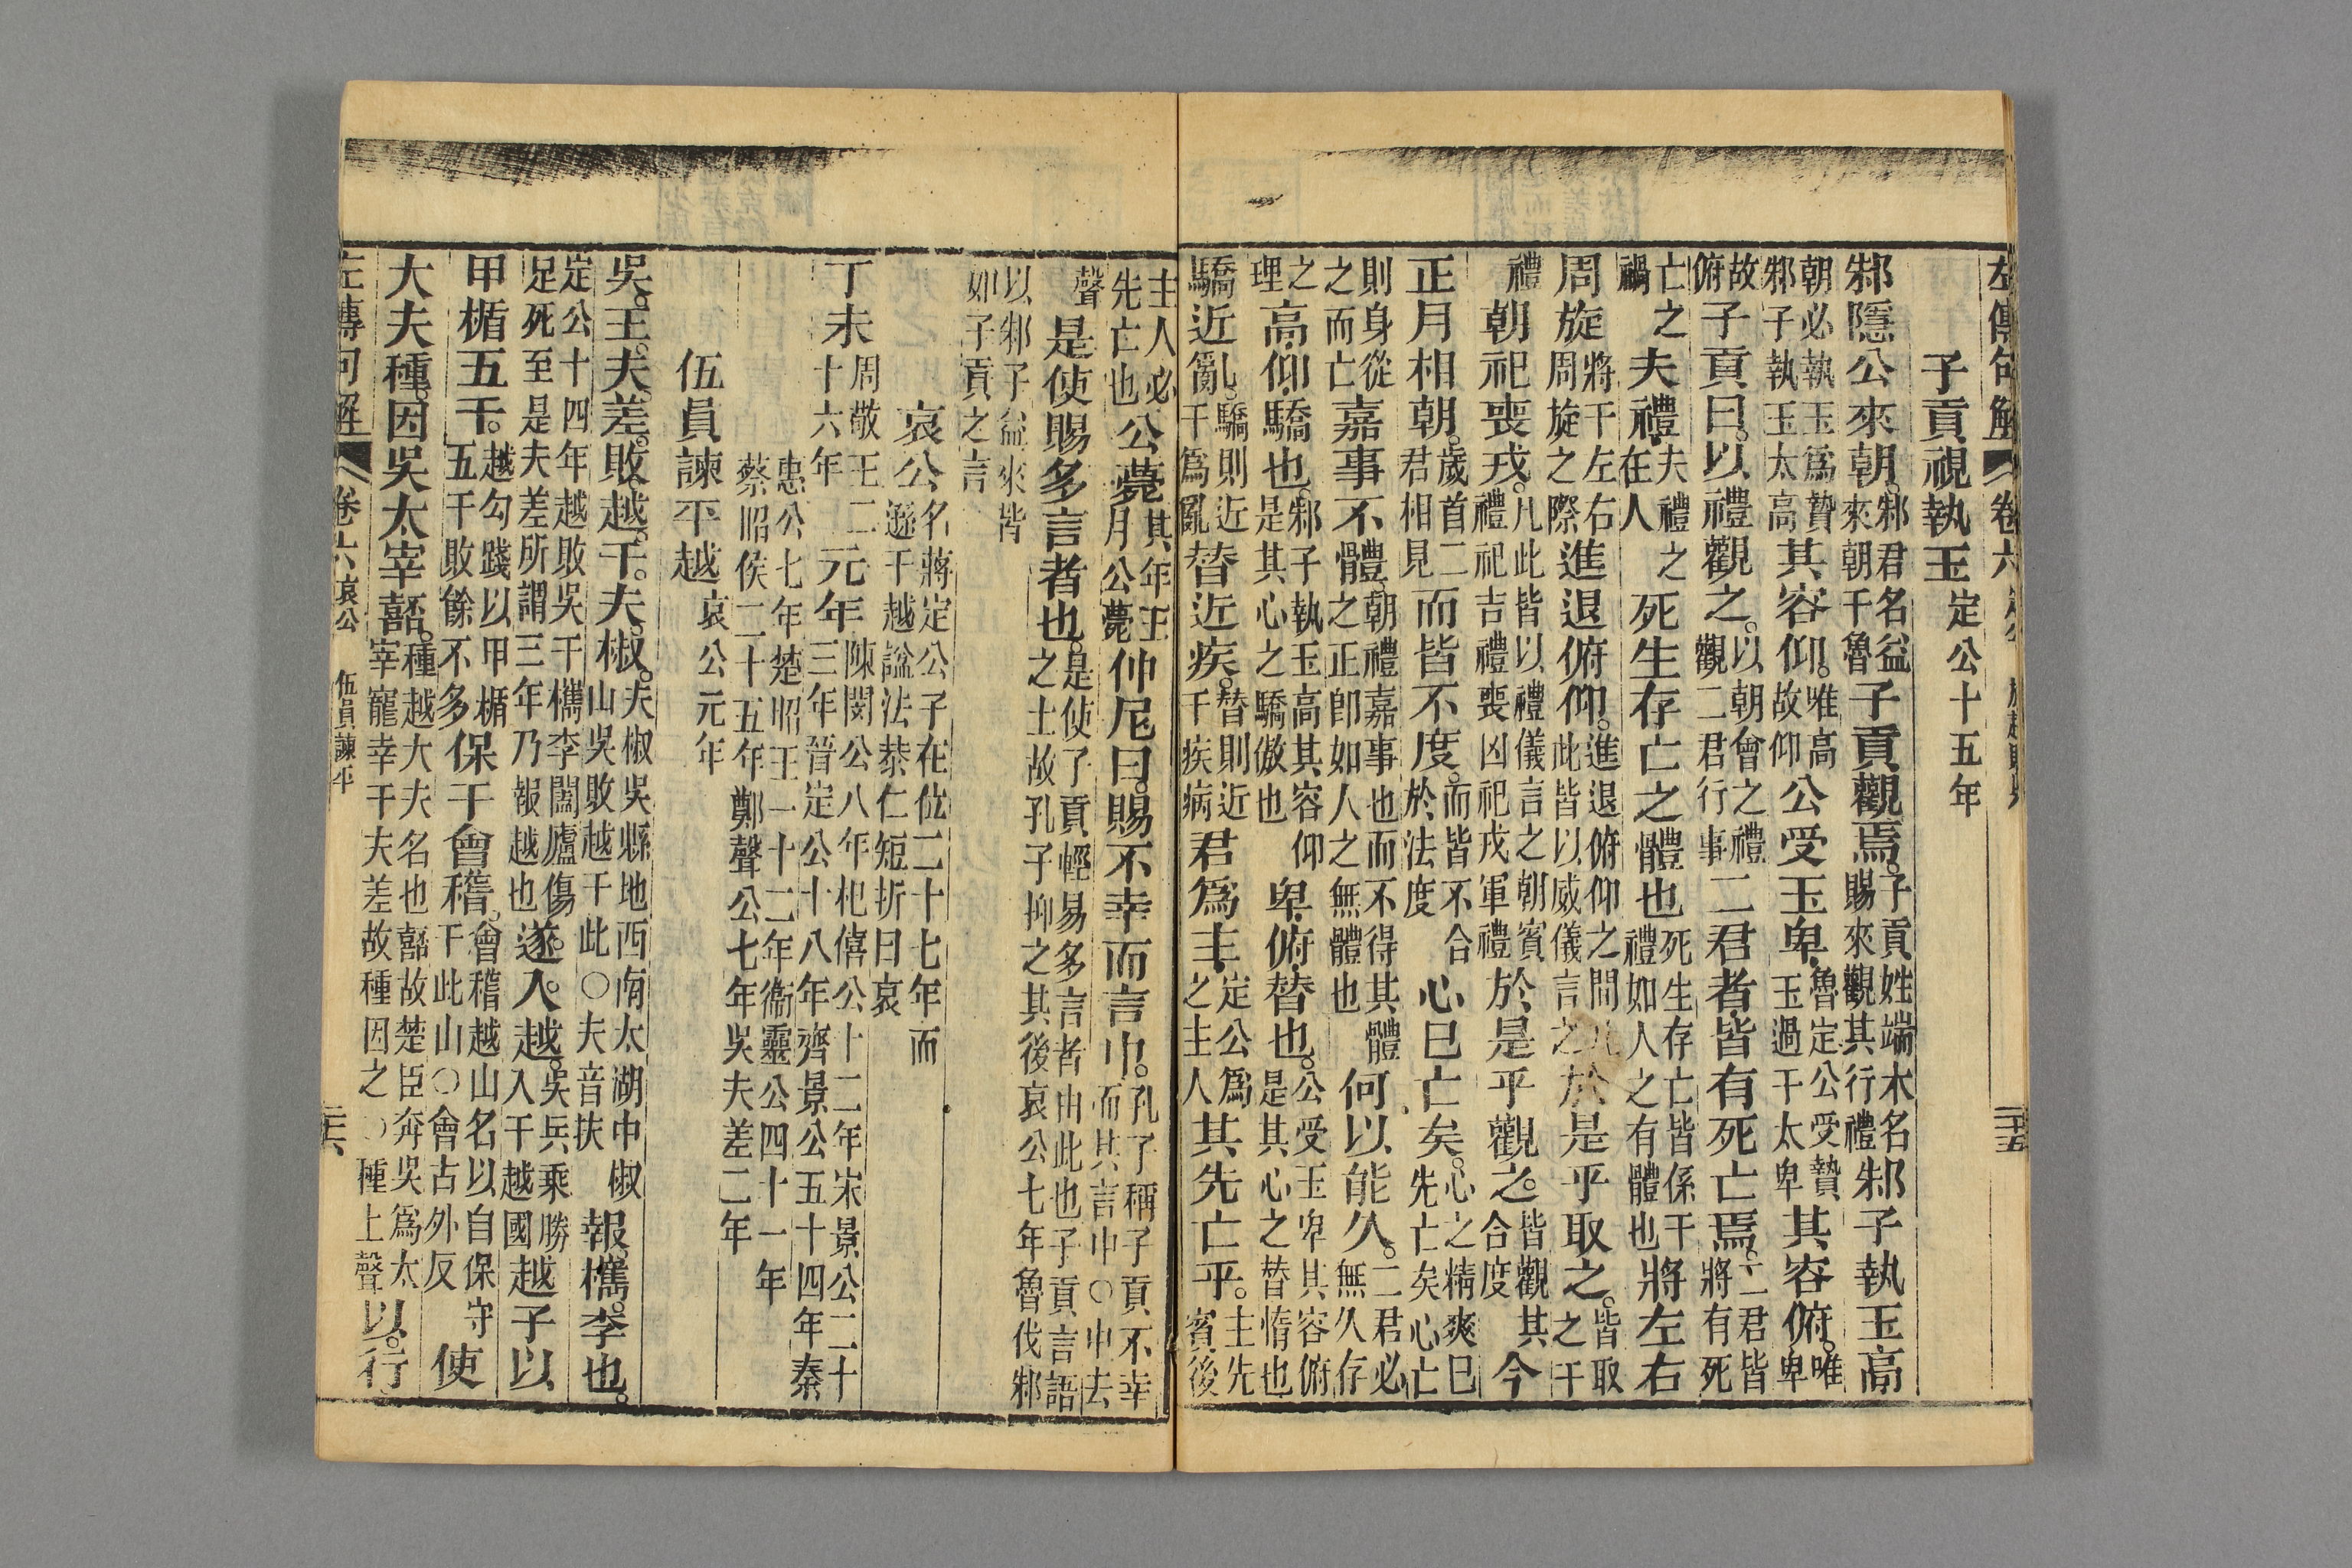 左傳句解 卷六
子貢視執玉 定公十五年
邾隱公來朝。邾君名益來朝于魯子貢觀焉。子貢姓端木名賜來觀其行禮邾子執玉高
朝必執玉爲贄邾子執玉太高其容仰。唯高故仰公受玉卑。魯定公受贄玉過于太卑其容俯。唯卑
故俯子貢曰。以禮觀之。以朝會之禮觀二君行事二君者皆有死亡焉。二君皆將有死
亡之禍夫禮夫禮之在人死生存亡之體也死生存亡皆係于禮如人之有體也將左右
周旋將于左右周旋之際進退俯仰。進退俯仰之間此皆以威儀言之於是乎取之。皆取之于
禮朝祀喪戎。凡此皆以禮儀言之朝賓禮祀吉禮喪凶祀戎軍禮於是乎觀之。皆觀其合度今
正月相朝。歲首二君相見而皆不度。而皆不合於法度心已亡矣。心之精爽已先亡矣心亡
則身從之而亡嘉事不體。朝禮嘉事也而不得其體之正卽如人之無體也何以能久。二君必無久存
之理高仰驕也。邾子執玉高其容仰是其心之驕傲也卑俯替也。公受玉卑其容俯是其心之替惰也
驕近亂。驕則近于爲亂替近疾。替則近于疾病君爲主。定公爲之主人其先亡乎。主先賓後
主人必先亡也公薨其年五月公薨仲尼曰。賜不幸而言中。孔子稱子貢不幸而其言中○中去
聲是使賜多言者也。是使子貢輕易多言者由此也子貢言語之士故孔子抑之其後哀公七年魯伐邾
以邾子益來皆如子貢之言
哀公名蔣定公子在位二十七年而遜于越諡法恭仁短折曰哀
丁未周敬王二十六年元年陳閔公八年杞僖公十二年宋景公二十三年晉定公十八年齊景公五十四年秦
惠公七年楚昭王二十二年衞靈公四十一年蔡昭侯二十五年鄭聲公七年吳夫差二年
伍員諫平越 哀公元年
吳。王。夫差。敗。越。于。夫。椒。夫椒吳縣地西南太湖中椒山吳敗越于此○夫音扶報檇。李也。
定公十四年越敗吳于檇李闔廬傷足死至是夫差所謂三年乃報越也遂。入。越。吳兵乘勝入于越國越子以
甲楯五千。越勾踐以甲楯五千敗餘不多保于會稽。會稽越山名以自保守于此山○會古外反使
大夫種。因吳太宰嚭。種越大夫名也嚭故楚臣奔吳爲太宰寵幸于夫差故種因之○種上聲以。行
左傳句解 卷六 哀公 伍員諫平